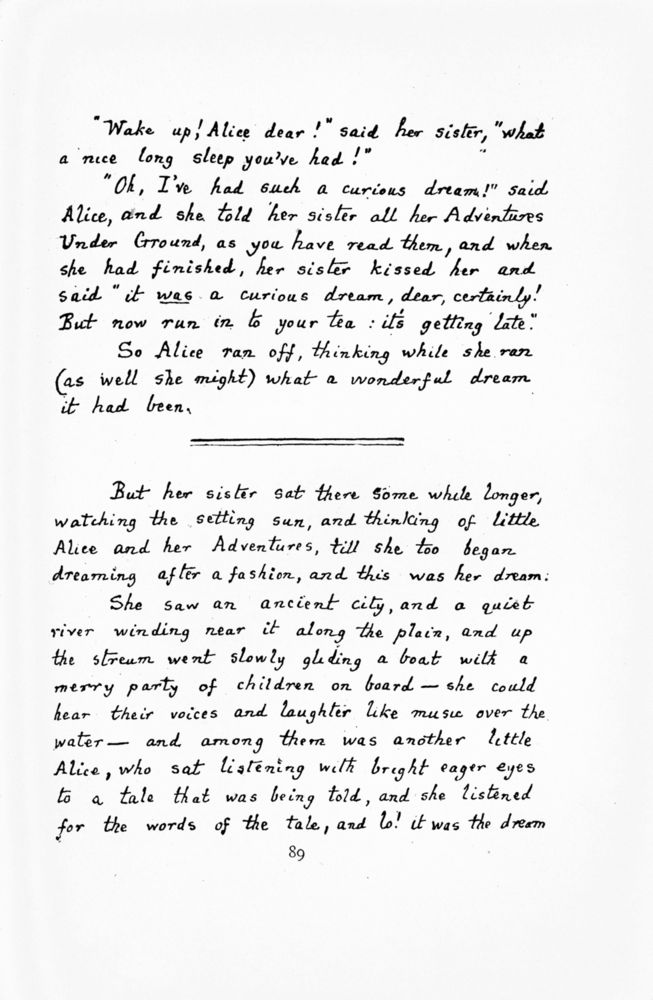 "Wake up! Alice dear!" said her sister, "what
a nice long sleep you've had!"
"Oh, I've had such a curious dream!" said
Alice, and she told her sister all her Adventures
Under Ground, as you have read them, and when
she had finished, her sister kissed her and
said "it was a curious dream, dear, certainly!
But now run in to your tea: it's getting late."
So Alice ran off, thinking while she ran
(as well she might) what a wonderful dream
it had been.
But her sister sat there some while longer,
watching the setting sun, and thinking of little
Alice and her Adventures, till she too began
dreaming after a fashion, and this was her dream:
She saw an ancient city, and a quiet
river winding near it along the plain, and up
the stream went slowly gliding a boat with a
merry party of children on board — she could
hear their voices and laughter like music over the
water — and among them was another little
Alice, who sat listening with bright eager eyes
to a tale that was being told, and she listened
for the words of the tale, and lo! it was the dream
89